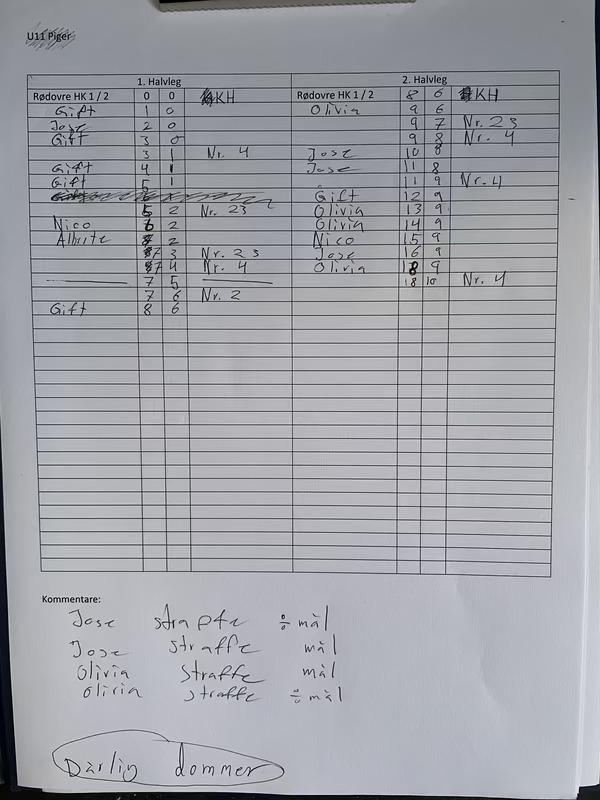 U11 Piger
1. Halvleg 2. Halvleg
Rødovre HK 1 / 2 0 0 KH Rødovre HK 1 / 2 8 6 KH
Gift 1 0 Olivia 9 6
Jose 2 0 9 7 Nr. 23
Gift 3 0 9 8 Nr. 4
3 1 Nr. 4 Jose 10 8
Gift 4 1 Jose 11 8
Gift 5 1 11 9 Nr. 4
Gift 12 9
5 2 Nr. 23 Olivia 13 9
Nico 6 2 Olivia 14 9
7 2 Nico 15 9
7 3 Nr. 23 Jose 16 9
7 4 Nr. 4 Olivia 18 9
7 5 18 10 Nr. 4
7 6 Nr. 2
Gift 8 6
Kommentare:
Jose ÷ mål
Jose straffe mål
Olivia straffe mål
Olivia straffe ÷ mål
Dårlig dommer